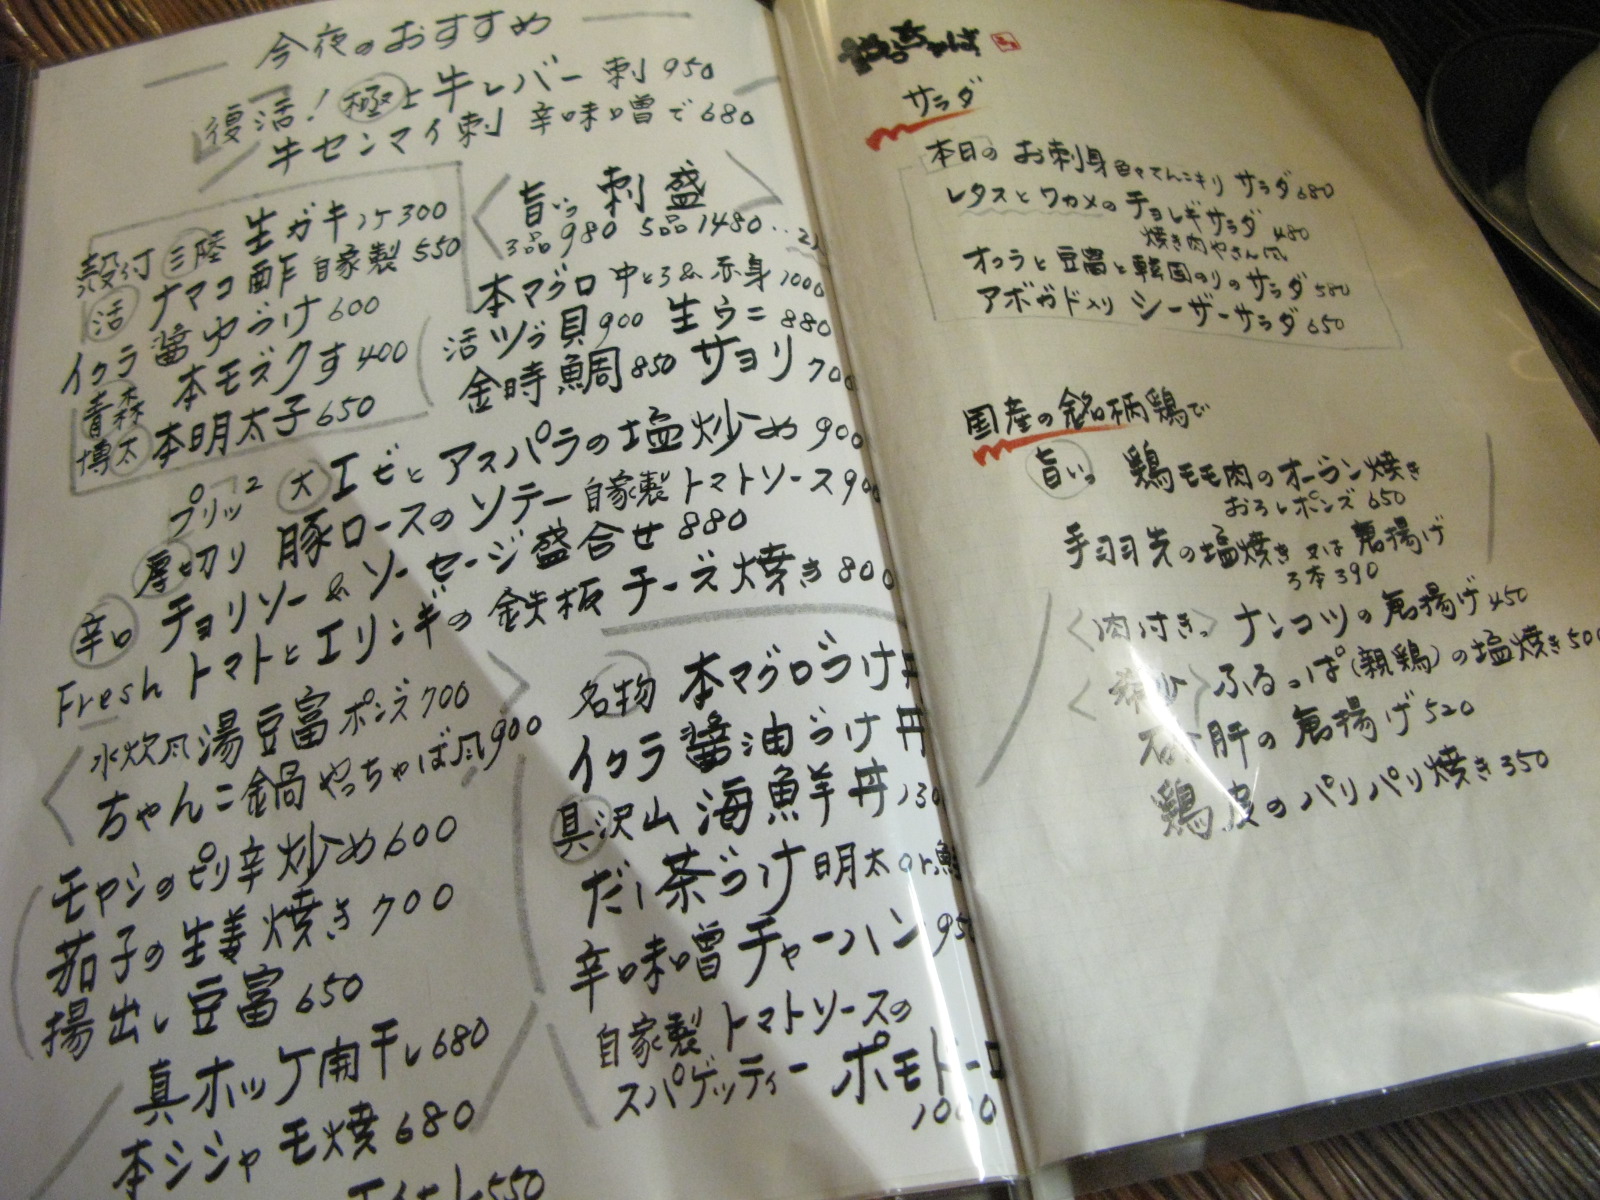 今夜のおすすめ
復活！極上牛レバー刺 950
牛センマイ刺 辛味噌で 680
殻付 三陸 生ガキ 1ケ 300
活 ナマコ酢 自家製 550
イクラ醤油づけ 600
青森 本モズクす 400
博太 本明太子 650
旨いっ 刺盛
3品980 5品1480
本マグロ 中とろ&赤身 1000
活ツブ貝 900 生ウニ 880
金時鯛 850 サヨリ
プリッ² 大エビとアスパラの塩炒め 900
厚切り 豚ロースのソテー 自家製トマトソース
辛口 チョリソー&ソーセージ盛合せ 880
Fresh トマトとエリンギの鉄板チーズ焼き 800
水炊風湯豆富 ポンズ 700
ちゃんこ鍋 やっちゃば風 900
モヤシのピリ辛炒め 600
茄子の生姜焼き 700
揚出し豆富 650
真ホッケ開干し 680
本シシャモ焼 680
550
名物 本マグロづけ丼
イクラ醤油づけ丼
具沢山 海鮮丼
だし茶づけ 明太or
辛味噌チャーハン
自家製トマトソースの
スパゲッティー ポモドーロ
1000
サラダ
本日の お刺身色々てんこモリ サラダ 680
レタスとワカメのチョレギサラダ 480
焼き肉やさん風
オクラと豆富と韓国のりのサラダ 580
アボガド入り シーザーサラダ 650
国産の銘柄鶏で
旨いっ 鶏モモ肉のオーブン焼き
おろしポンズ 650
手羽先の塩焼き 又は 唐揚げ
3本 390
肉付きっ ナンコツの唐揚げ 450
希少 ふるっぱ(親鶏)の塩焼き 500
砂肝の唐揚げ 520
鶏皮のパリパリ焼き 350